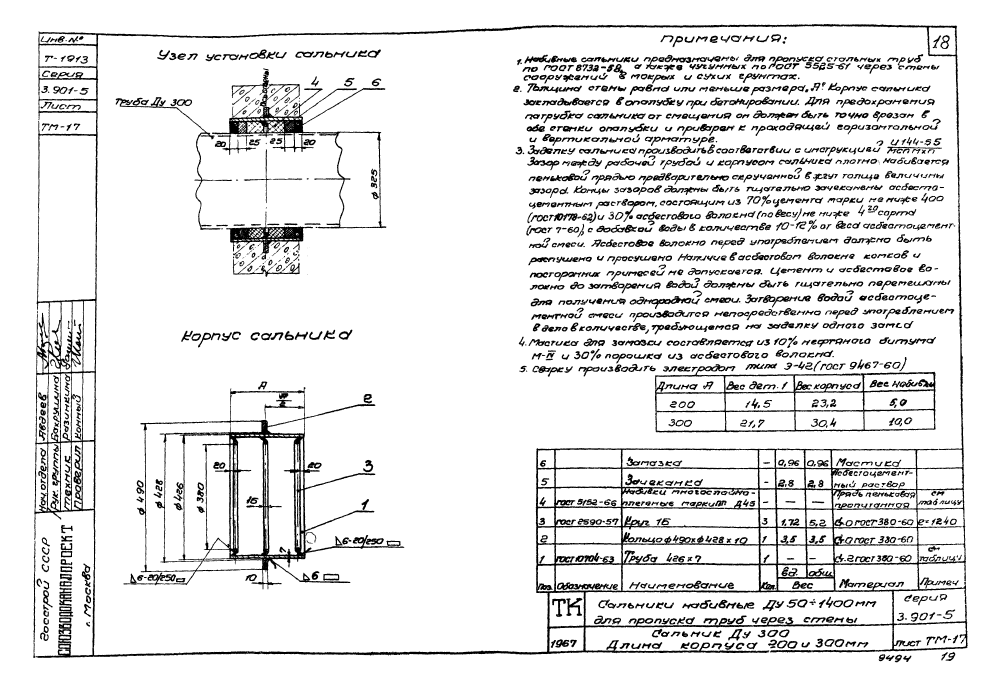 18
Инв. №
Т-1913
Серия
3.901-5
Лист
ТМ-17
Узел установки сальника
4 5 6
Труба Ду 300
20 25 25 20
ф 325
Корпус сальника
А
А/2
2
20 20
3
15
1
ф 490
ф 428
ф 426
ф 380
7
6-20/250
6-20/250
10
6
Нач. отдела Авдеев
Рук. группы Бахрушина
Техник Разинкина
Проверил Конный
Госстрой СССР
СОЮЗВОДОКАНАЛПРОЕКТ
г. Москва
Примечания:
1. Набивные сальники предназначены для пропуска стальных труб
по ГОСТ 8732-58, а также чугунных по ГОСТ 5525-61 через стены
сооружений в мокрых и сухих грунтах.
2. Толщина стены равна или меньше размера „А". Корпус сальника
закладывается в опалубку при бетонировании. Для предохранения
патрубка сальника от смещения он должен быть точно врезан в
обе стенки опалубки и приварен к проходящей горизонтальной
и вертикальной арматуре.
3. Заделку сальника производить в соответствии с инструкцией И 144-55 МСПМХП
Зазор между рабочей трубой и корпусом сальника плотно набивается
пеньковой прядью предварительно скрученной в жгут толще величины
зазора. Концы зазоров должны быть тщательно зачеканены асбесто-
цементным раствором, состоящим из 70% цемента марки не ниже 400
(ГОСТ 10178-62) и 30% асбестового волокна (по весу) не ниже 4го сорта
(ГОСТ 7-60), с добавкой воды в количестве 10-12% от веса асбестоцемент-
ной смеси. Асбестовое волокно перед употреблением должно быть
распушено и просушено Наличие в асбестовом волокне комков и
посторонних примесей не допускается. Цемент и асбестовое во-
локно до затворения водой должны быть тщательно перемешаны
для получения однородной смеси. Затворение водой асбестоце-
ментной смеси производится непосредственно перед употреблением
в дело в количестве, требующемся на заделку одного замка
4. Мастика для замазки составляется из 10% нефтяного битума
М-IV и 30% порошка из асбестового волокна.
5. Сварку производить электродом типа Э-42 (ГОСТ 9467-60)
Длина А Вес дет. 1 Вес корпуса Вес набивки
200 14,5 23,2 5,0
300 21,7 30,4 10,0
6 Замазка - 0,96 0,96 Мастика
5 Зачеканка - 2,8 2,8 Асбестоцемент-ный раствор
4 ГОСТ 5152-66 Набивки многослойно-плетеные марки ПП Д45 - — — Прядь пеньковая пропитанная см таблицу
3 ГОСТ 2590-57 Круг 15 3 1,72 5,2 Ст.0 ГОСТ 380-60 ℓ=1240
2 Кольцо ф490хф428х10 1 3,5 3,5 Ст.0 ГОСТ 380-60
1 ГОСТ 10704-63 Труба 426х7 1 - - Ст.2 ГОСТ 380-60 см таблицу
Поз. Обозначение Наименование Кол. ед. общ. Вес Материал Примеч
ТК
Сальники набивные Ду 50÷1400мм
для пропуска труб через стены
Серия
3.901-5
1967
Сальник Ду 300
Длина корпуса 200 и 300мм
Лист ТМ-17
9494 19